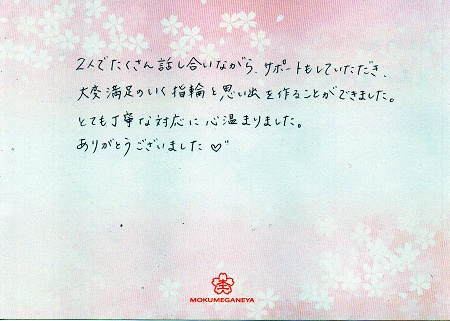 2人でたくさん話し合いながら、サポートもしていただき、
大変満足のいく指輪と思い出を作ることができました。
とても丁寧な対応に心温まりました。
ありがとうございました♡
MOKUMEGANEYA